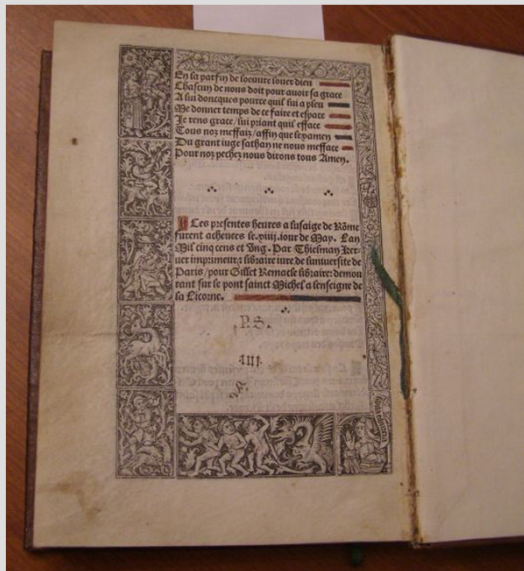 En la parfin de loeuvre louer dieu
Chascun de nous doit pour avoir sa grace
A lui doncques pource quil lui a pleu
Me donner temps de ce faire et espace
Je rens grace/lui priant quil efface
Tous noz meffaiz/affin que lexamen
Du grant iuge sathan ne nous mefface
Pour noz pechez nous dirons tous Amen.
Ces presentes heures a lusaige de Rôme
furent acheuees le.xiiii.iour de May. Lan
Mil cinq cens et Ung. Par Thielman ker-
uer imprimeur/et libraire iure de luniuersite de
Paris/pour Gillet Remacle libraire: demou
rant sur le pont sainct Michel a lenseigne de
la Licorne.
.P.S.